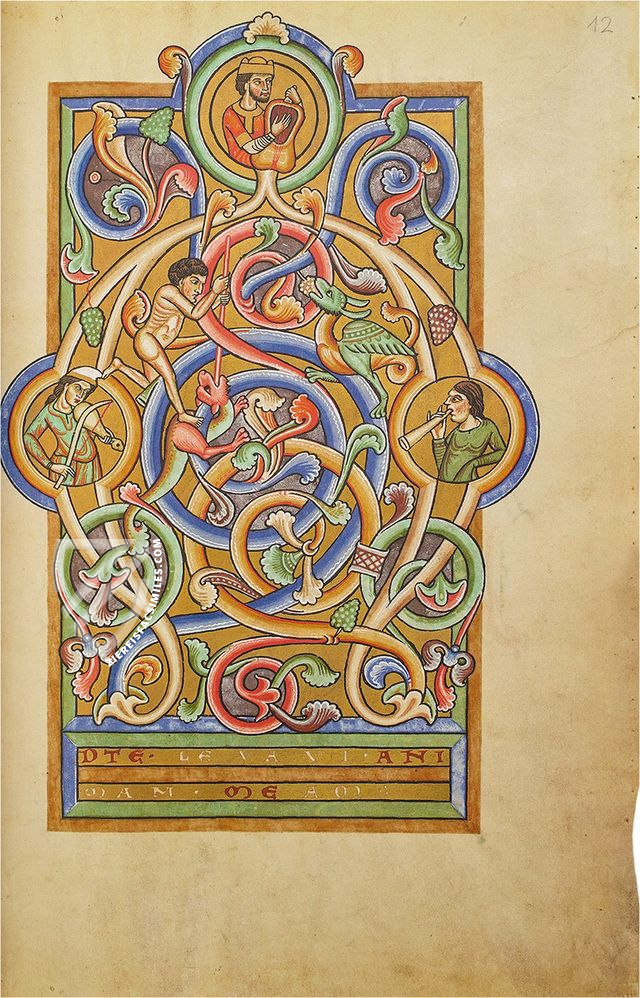 12
DTE· LEVAVI· ANI
MAM · MEAM
ZIEREISFACSIMILES.COM